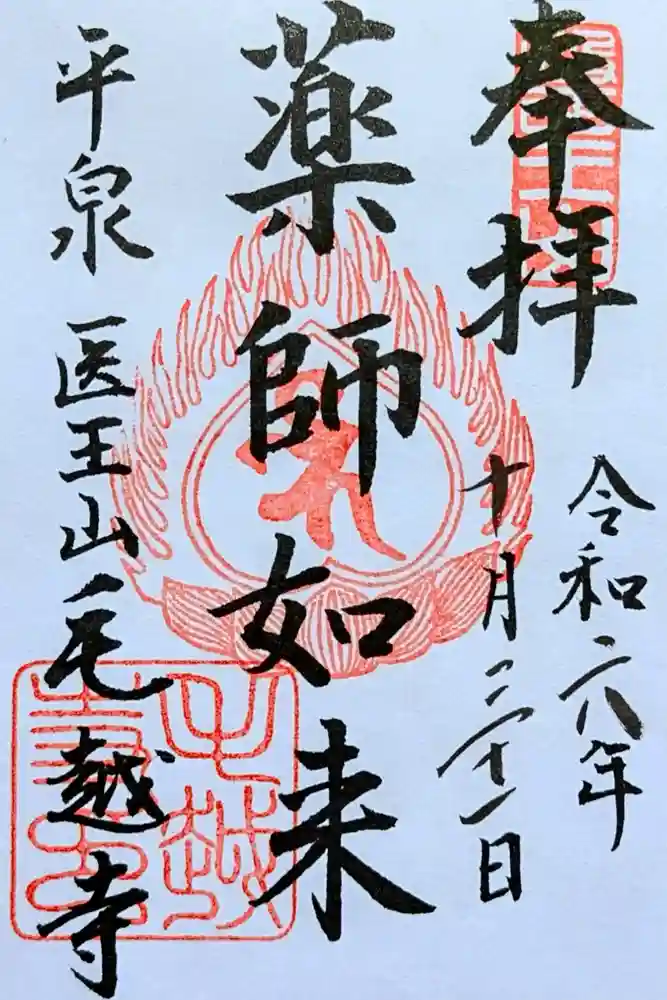 奉拝
令和六年
十月三十一日
薬師如来
平泉 医王山毛越寺